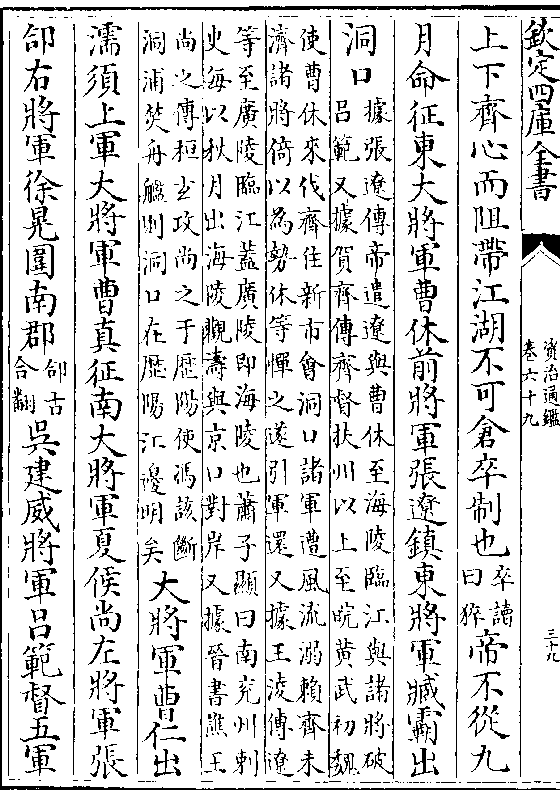 欽定四庫全書
資治通鑑
卷六十九
三十九
上下齊心而阻帶江湖不可倉卒制也卒讀曰猝帝不從九
月命征東大將軍曹休前將軍張遼鎮東將軍臧霸出
洞口據張遼傳帝遣遼與曹休至海陵臨江與諸將破
呂範又據賀齊傳齊督扶州以上至皖黃武初魏
使曹休來伐齊住新市會洞口諸軍遭風流溺賴齊未
濟諸將倚以為勢休等憚之遂引軍還又據王淩傳遼
等至廣陵臨江蓋廣陵即海陵也蕭子顯曰南兗州刺
史海以秋月出海陵觀濤與京口對岸又據晉書譙王
尚之傳桓玄攻尚之于歷陽使馮該斷
洞浦焚舟艦則洞口在歷陽江邊明矣大將軍曹仁出
濡須上軍大將軍曹真征南大將軍夏侯尚左將軍張
郃右將軍徐晃圍南郡郃古合翻吳建威將軍呂範督五軍